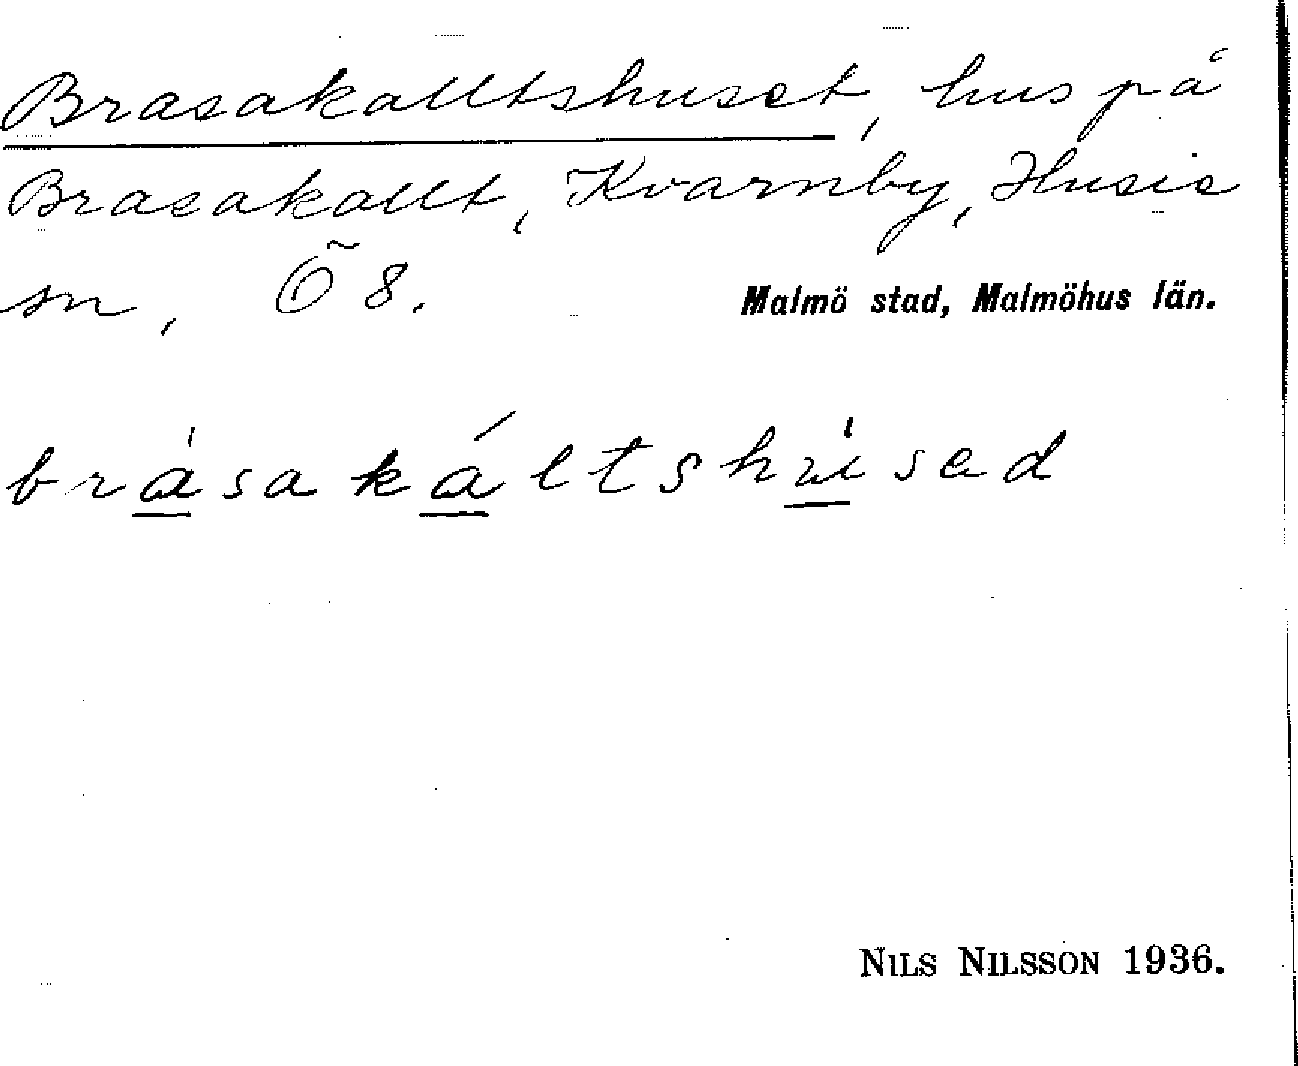 Brasakalltshuset, hus på
Brasakallt, Kvarnby, Husie
sn, Ö 8. Malmö stad, Malmöhus län.
bràsakáltshùsad
NILS NILSSON 1936.